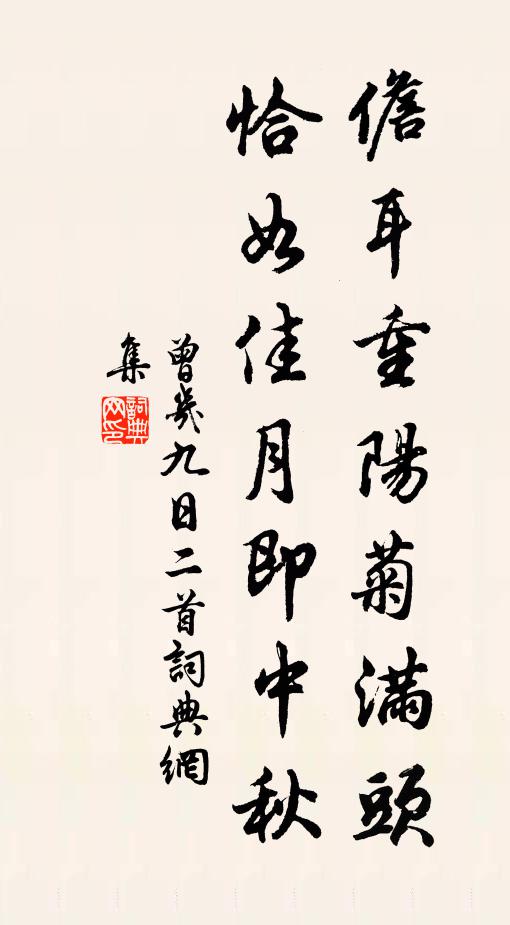 儋耳重陽菊滿頭
恰如佳月即中秋
曾幾九日二首詞典網
集
詞典
网印